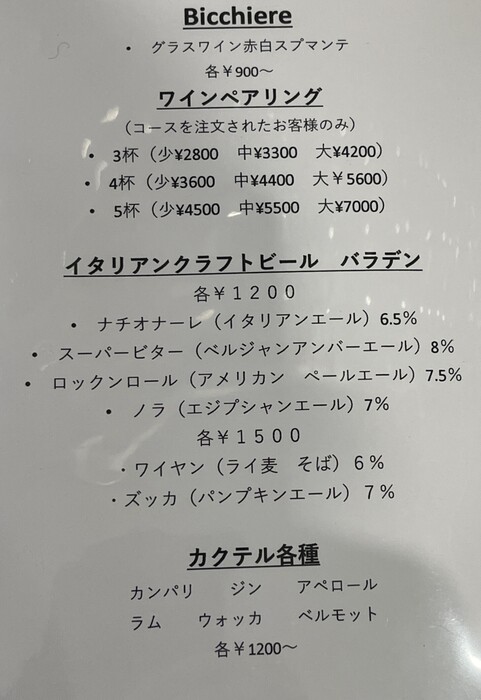 Bicchiere
• グラスワイン赤白スプマンテ
各￥900～
ワインペアリング
（コースを注文されたお客様のみ）
• 3杯（少¥2800　中¥3300　大¥4200）
• 4杯（少¥3600　中¥4400　大￥5600）
• 5杯（少¥4500　中¥5500　大¥7000）
イタリアンクラフトビール　バラデン
各￥１２００
• ナチオナーレ（イタリアンエール）6.5%
• スーパービター（ベルジャンアンバーエール）8%
• ロックンロール（アメリカン　ペールエール）7.5%
• ノラ（エジプシャンエール）7%
各￥１５００
・ワイヤン（ライ麦　そば）６％
・ズッカ（パンプキンエール）７％
カクテル各種
カンパリ　ジン　アペロール
ラム　ウォッカ　ベルモット
各¥1200～